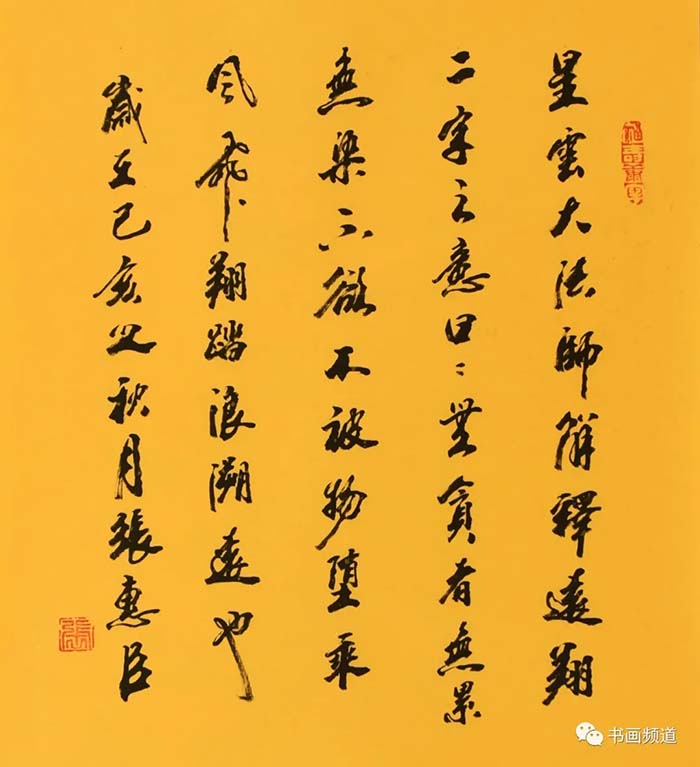 星雲大法師解釋遠翔
二字之意曰：無貪者無累
無染不欲不被物墮乘
風飛翔踏浪溯遠也
歲在己亥之秋月張惠臣
張
书画频道